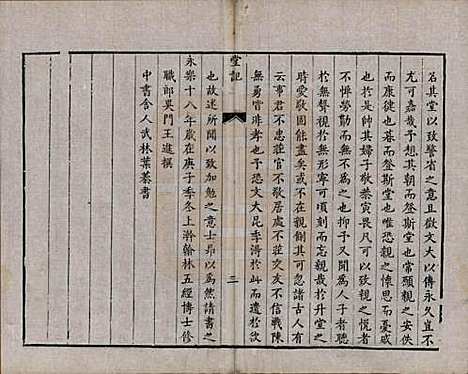 名其堂以致警省之意且徵文大以傳永久豈不
尤可嘉哉予想其朝而登斯堂也常願親之安佚
而康健也暮而登斯堂也惟恐親之懷思而憂戚
也於是帥其婦子敬恭寅畏凡可以致親之悅者
不憚勞勩而為之也抑予又聞為人子者聽
於無聲視於無形寧可頃刻而忘親哉於升堂之
時愛敬固能盡矣或不在親側其可忽諸古人有
云事君不忠莅官不敬居處不莊交友不信戰陳
無勇皆非孝也予恐文大昆季得於此而遺於彼
也故述所聞以致加勉之意士昂以為然請書之
永樂十八年歲在庚子季冬上澣翰林五經博士修
職郎吳門王進撰
中書舍人武林葉蓁書
堂記
三